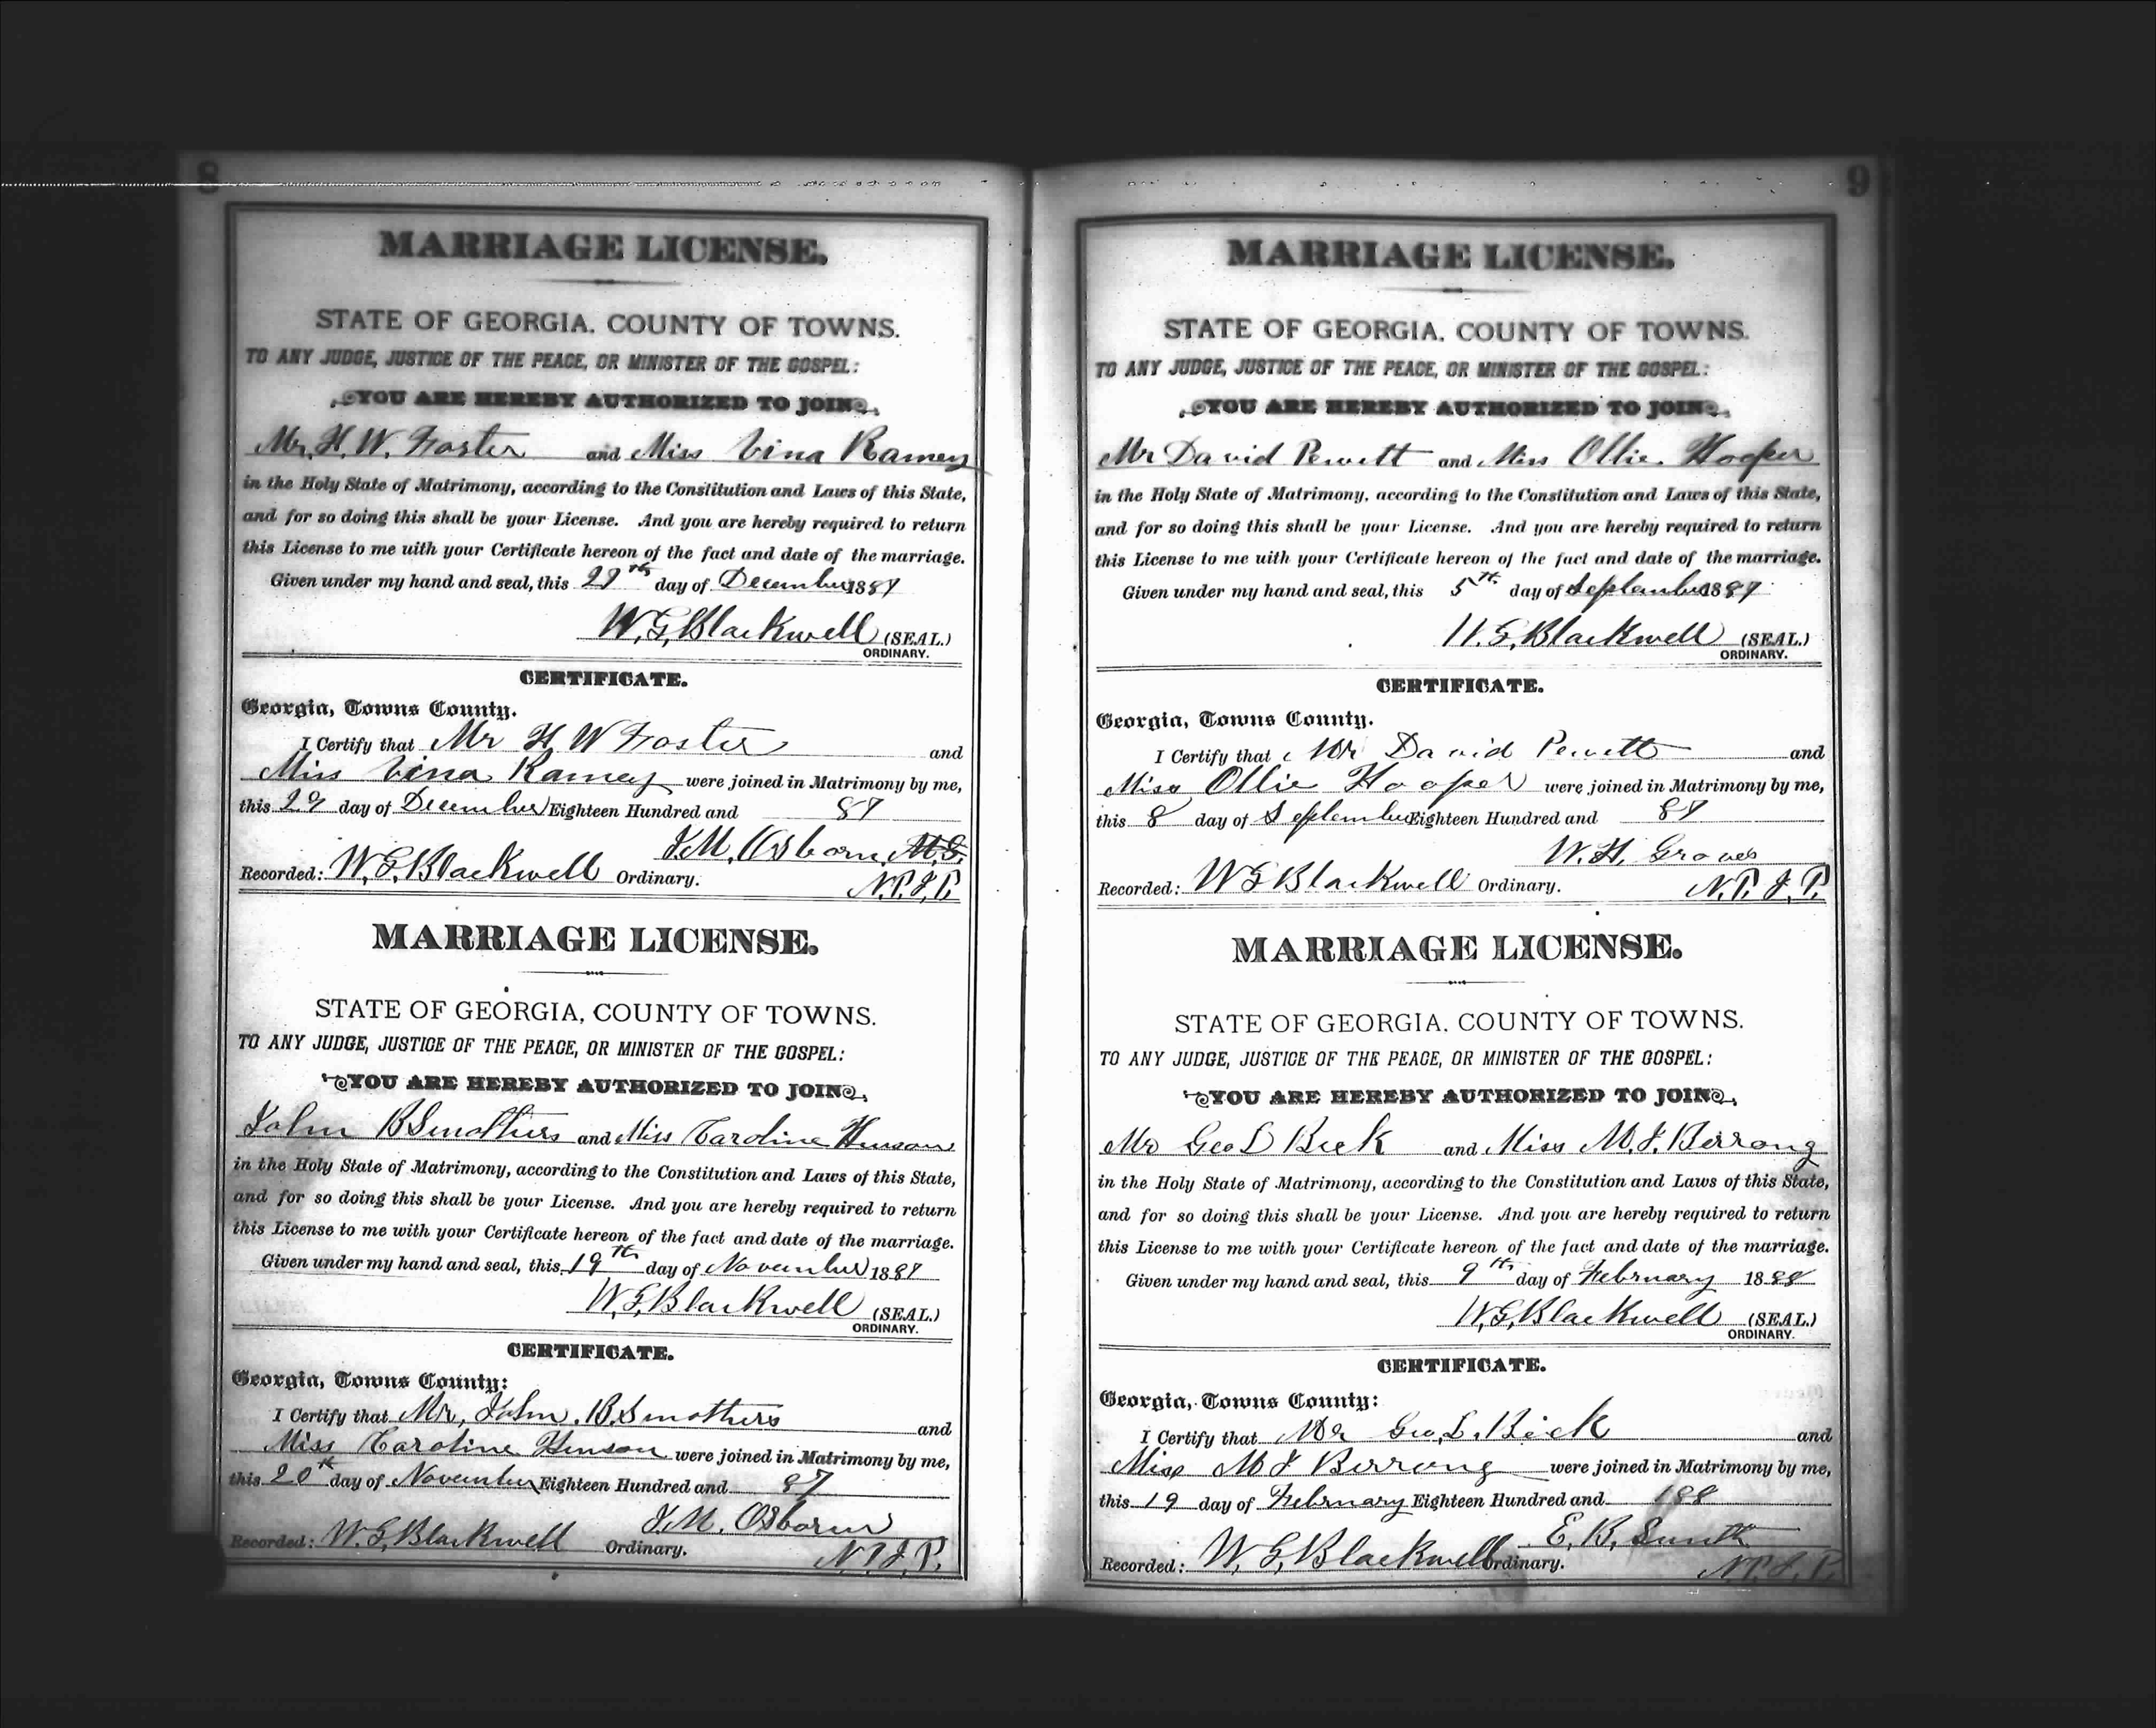 8
MARRIAGE LICENSE.
STATE OF GEORGIA. COUNTY OF TOWNS.
TO ANY JUDGE, JUSTICE OF THE PEACE, OR MINISTER OF THE GOSPEL:
YOU ARE HEREBY AUTHORIZED TO JOIN
Mr. H. W. Foster and Miss Vina Ramey
in the Holy State of Matrimony, according to the Constitution and Laws of this State,
and for so doing this shall be your License. And you are hereby required to return
this License to me uith your Certificate hereon of the fact and date of the marriage.
Given under my hand and seal, this th day of December 1887
W. G. Blackwell (SEAL.)
ORDINARY.
CERTIFICATE.
Georgia, Towns County.
I Certify that Mr H W Foster and
Miss Vina Ramey were joined in Matrimony by me,
this 29 day of December Eighteen Hundred and 87
J. M. Osborn, M.G.
Recorded: W. G. Blackwell Ordinary. N. P. J. P.
MARRIAGE LICENSE.
STATE OF GEORGIA, COUNTY OF TOWNS.
TO ANY JUDGE, JUSTICE OF THE PEACE, OR MINISTER OF THE GOSPEL:
YOU ARE HEREBY AUTHORIZED TO JOIN
John B Smothers and Miss Caroline Henson
in the Holy State of Matrimony, according to the Constitution and Laws of this State,
and for so doing this shall be your License. And you are hereby required to return
this License to me with your Certificate hereon of the fact and date of the marriage.
Given under my hand and seal, this 19th day of November 1887
W. G. Blackwell (SEAL.)
ORDINARY.
CERTIFICATE.
Georgia, Towns County:
I Certify that Mr, John. B. Smothers and
Miss Caroline Henson were joined in Matrimony by me,
this 20th day of November Eighteen Hundred and 87
J. M. Osborn
Recorded: W. G. Blackwell Ordinary. N. P. J. P.
9
MARRIAGE LICENSE.
STATE OF GEORGIA. COUNTY OF TOWNS.
TO ANY JUDGE, JUSTICE OF THE PEACE, OR MINISTER OF THE GOSPEL:
YOU ARE HEREBY AUTHORIZED TO JOIN
Mr David Pewett and Miss Ollie. Hooper
in the Holy State of Matrimony, according to the Constitution and Laws of this State,
and for so doing this shall be your License. And you are hereby required to return
this License to me uith your Certificate hereon of the fact and date of the marriage.
Given under my hand and seal, this 5th day of September 1887
W. G. Blackwell (SEAL.)
ORDINARY.
CERTIFICATE.
Georgia, Towns County.
I Certify that Mr David Pewett and
Miss Ollie Hooper were joined in Matrimony by me,
this 8 day of September Eighteen Hundred and 87
W. H. Groves
Recorded: W G Blackwell Ordinary. N. P. J. P.
MARRIAGE LICENSE.
STATE OF GEORGIA. COUNTY OF TOWNS.
TO ANY JUDGE, JUSTICE OF THE PEACE, OR MINISTER OF THE GOSPEL:
YOU ARE HEREBY AUTHORIZED TO JOIN
Mr Geo L and Miss M. J. Berrong
in the Holy State of Matrimony, according to the Constitution and Laws of this State,
and for so doing this shall be your License. And you are hereby required to return
this License to me with your Certificate hereon of the fact and date of the marriage.
Given under my hand and seal, this 9th day of February 1888
W. G. Blackwell (SEAL.)
ORDINARY.
CERTIFICATE.
Georgia, Towns County:
I Certify that Mr Geo, L. and
Miss M J Berrong were joined in Matrimony by me,
this 19 day of February Eighteen Hundred and 188
E. B. Smith
Recorded: W. G. Blackwell Ordinary. N. P. J. P.